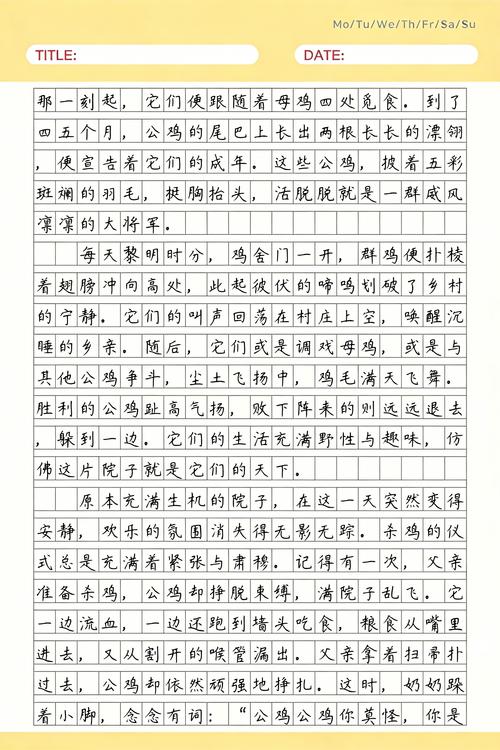 Mo/Tu/We/Th/Fr/Sa/Su
TITLE: DATE:
那一刻起，它们便跟随着母鸡四处觅食。到了
四五个月，公鸡的尾巴上长出两根长长的漂翎
，便宣告着它们的成年。这些公鸡，披着五彩
斑斓的羽毛，挺胸抬头，活脱脱就是一群威风
凛凛的大将军。
每天黎明时分，鸡舍门一开，群鸡便扑棱
着翅膀冲向高处，此起彼伏的啼鸣划破了乡村
的宁静。它们的叫声回荡在村庄上空，唤醒沉
睡的乡亲。随后，它们或是调戏母鸡，或是与
其他公鸡争斗，尘土飞扬中，鸡毛满天飞舞。
胜利的公鸡趾高气扬，败下阵来的则远远退去
，躲到一边。它们的生活充满野性与趣味，仿
佛这片院子就是它们的天下。
原本充满生机的院子，在这一天突然变得
安静，欢乐的氛围消失得无影无踪。杀鸡的仪
式总是充满着紧张与肃穆。记得有一次，父亲
准备杀鸡，公鸡却挣脱束缚，满院子乱飞。它
一边流血，一边还跑到墙头吃食，粮食从嘴里
进去，又从割开的喉管漏出。父亲拿着扫帚扑
过去，公鸡却依然顽强地挣扎。这时，奶奶跺
着小脚，念念有词：“公鸡公鸡你莫怪，你是